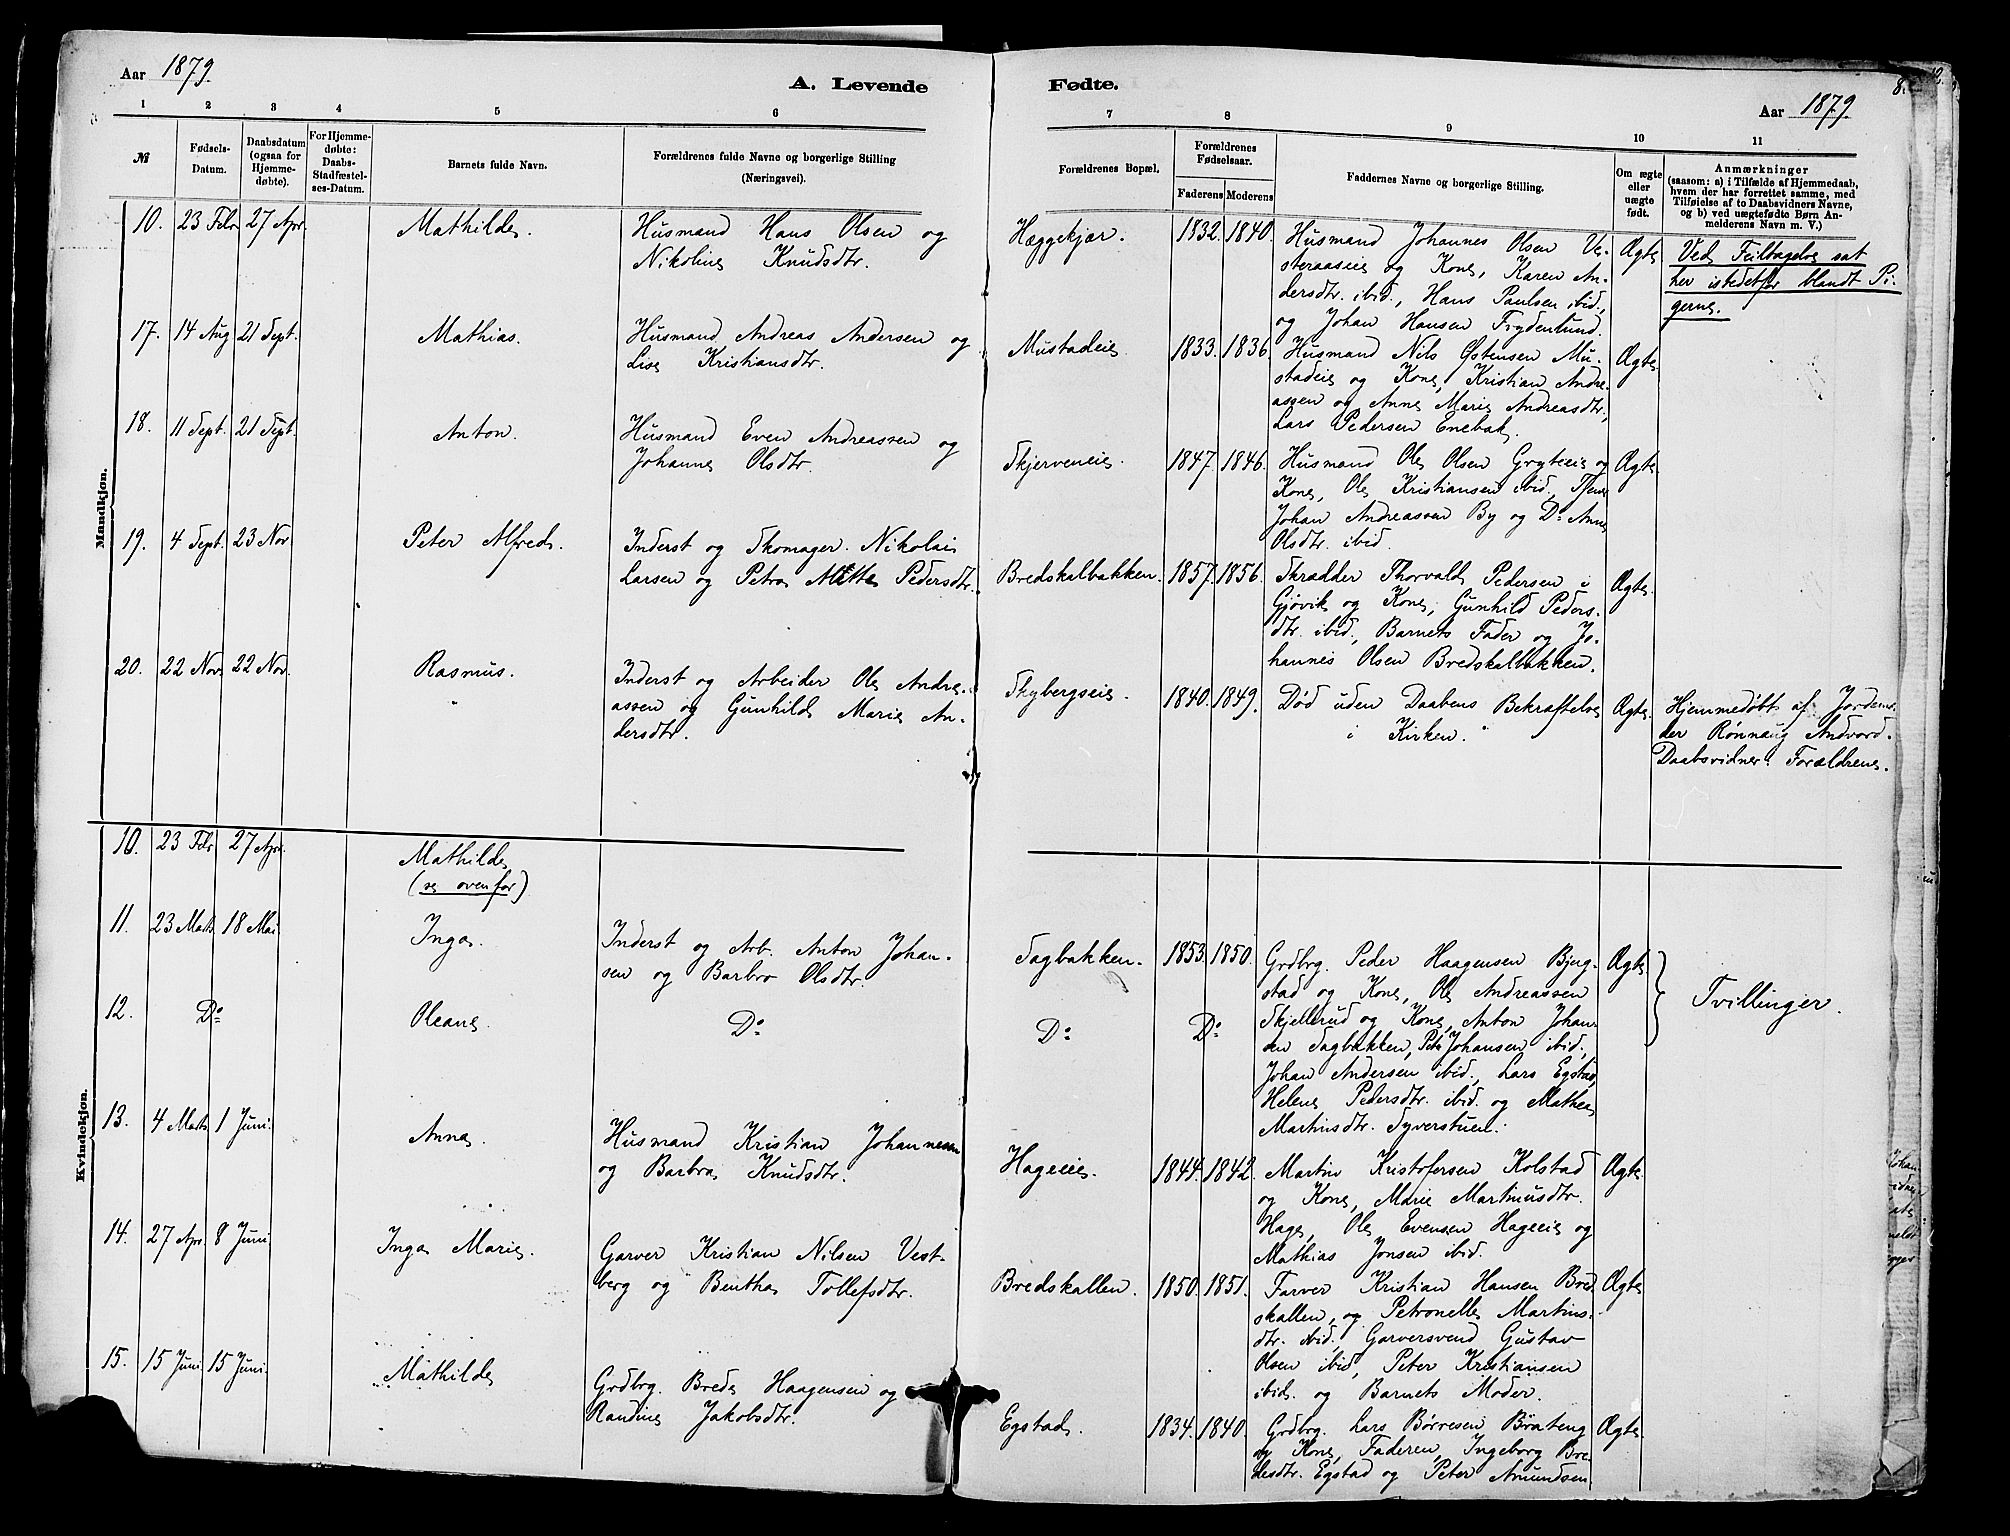 Aar 1879.
A. Levende Fødte.
Aar 1879.
8.
1 2 3 4 5 6 7 8 9 10 11
№
Fødsels-
Datum.
Daabsdatum
(ogsaa for
Hjemme-
døbte).
For Hjemme-
døbte:
Daabs-
Stadfæstel-
ses-Datum.
Barnets fulde Navn.
Forældrenes fulde Navne og borgerlige Stilling
(Næringsvei).
Forældrenes Bopæl.
Forældrenes
Fødselsaar.
Faderens Moderens
Faddernes Navne og borgerlige Stilling.
Om ægte
eller
uægte
født.
Anmærkninger
(saasom: a) i Tilfælde af Hjemmedaab,
hvem der har forrettet samme, med
Tilføielse af to Daabsvidners Navne,
og b) ved uægtefødte Børn An-
melderens Navn m. V.)
Mandkjøn.
10. 23 Febr 27 Apr. Mathilde.
Husmand Hans Olsen og
Nikoline Knudsdtr.
Hæggekjær. 1832. 1840.
Husmand Johannes Olsen Ve-
steraaseie og Kone, Karen An-
dersdtr. ibid., Hans Paulsen ibid.,
og Johan Hansen Frydenlund.
Ægte
Ved Feiltagelse sat
her istedetfor blandt Pi-
gerne.
17. 14 Aug 21 Sept. Mathias.
Husmand Andreas Andersen og
Lise Kristiansdtr.
Mustadeie. 1833. 1836.
Husmand Nils Østensen Mu-
stadeie og Kone, Kristian Andre-
assen og Anne Marie Andreasdtr.,
Lars Pedersen Enebak.
Ægte
18. 11 Sept. 21 Sept. Anton.
Husmand Even Andreassen og
Johanne Olsdtr.
Skjerveneie. 1847. 1846.
Husmand Ole Olsen Gryteeie og
Kone, Ole Kristiansen ibid., Tjener
Johan Andreassen By og Do Anne
Olsdtr. ibid.
Ægte
19. 4 Sept. 23 Nov Peter Alfred.
Inderst og Skomager Nikolai
Larsen og Petra Mette Pedersdtr.
Bredskalbakken. 1857. 1856.
Skrædder Thorvald Pedersen i
Gjøvik og Kone, Gunhild Peders-
dtr. ibid., Barnets Fader og Jo-
hannes Olsen Bredskalbakken.
Ægte
20. 22 Nov. 22 Nov. Rasmus.
Inderst og Arbeider Ole Andre-
assen og Gunhild Marie An-
dersdtr.
Skybergseie. 1840. 1849.
Død uden Daabens Bekræftelse
i Kirken.
Ægte
Hjemmedøbt af Jordemo-
der Rønnaug Andvord.
Daabsvidner: Forældrene.
Kvindekjøn.
10. 23 Febr 27 Apr. Mathilde
(se ovenfor)
11. 23 Marts 18 Mai Inga.
Inderst og Arb. Anton Johan-
sen og Barbro Olsdtr.
Sagbakken. 1853. 1850.
Grdbrg. Peder Haagensen Bjug-
stad og Kone, Ole Andreassen
Skjellerud og Kone, Anton Johan-
sen Sagbakken, Peter Johansen ibid.,
Johan Andersen ibid., Lars Egstad,
Helene Pedersdtr. ibid. og Mathea
Martinsdtr. Syverstuen.
Ægte
Tvillinger.
12. Do Oleane. Do Do Do
13. 4 Marts 1 Juni. Anna.
Husmand Kristian Johannesen
og Barbra Knudsdtr.
Hageeie. 1844. 1842.
Martin Kristofersen Kolstad
og Kone, Marie Martinusdtr.
Hage, Ole Evensen Hageeie og
Mathias Jonsen ibid.
Ægte
14. 27 Apr. 8 Juni Inga Marie.
Garver Kristian Nilsen Vest-
berg og Benthe Tollefsdtr.
Bredskallen. 1850. 1851.
Farver Kristian Hansen Bred-
skallen, og Petronelle Martins-
dtr. ibid., Garversvend Gustav
Olsen ibid, Peter Kristiansen
ibid. og Barnets Moder.
Ægte
15. 15 Juni 15 Juni. Mathilde
Grdbrg. Brede Haagensen og
Randine Jakobsdtr.
Egstad. 1834. 1840.
Grdbrg. Lars Børresen Braateng
og Kone, Faderen, Ingeborg Bre-
desdtr. Egstad og Peter Amundsen
Ægte